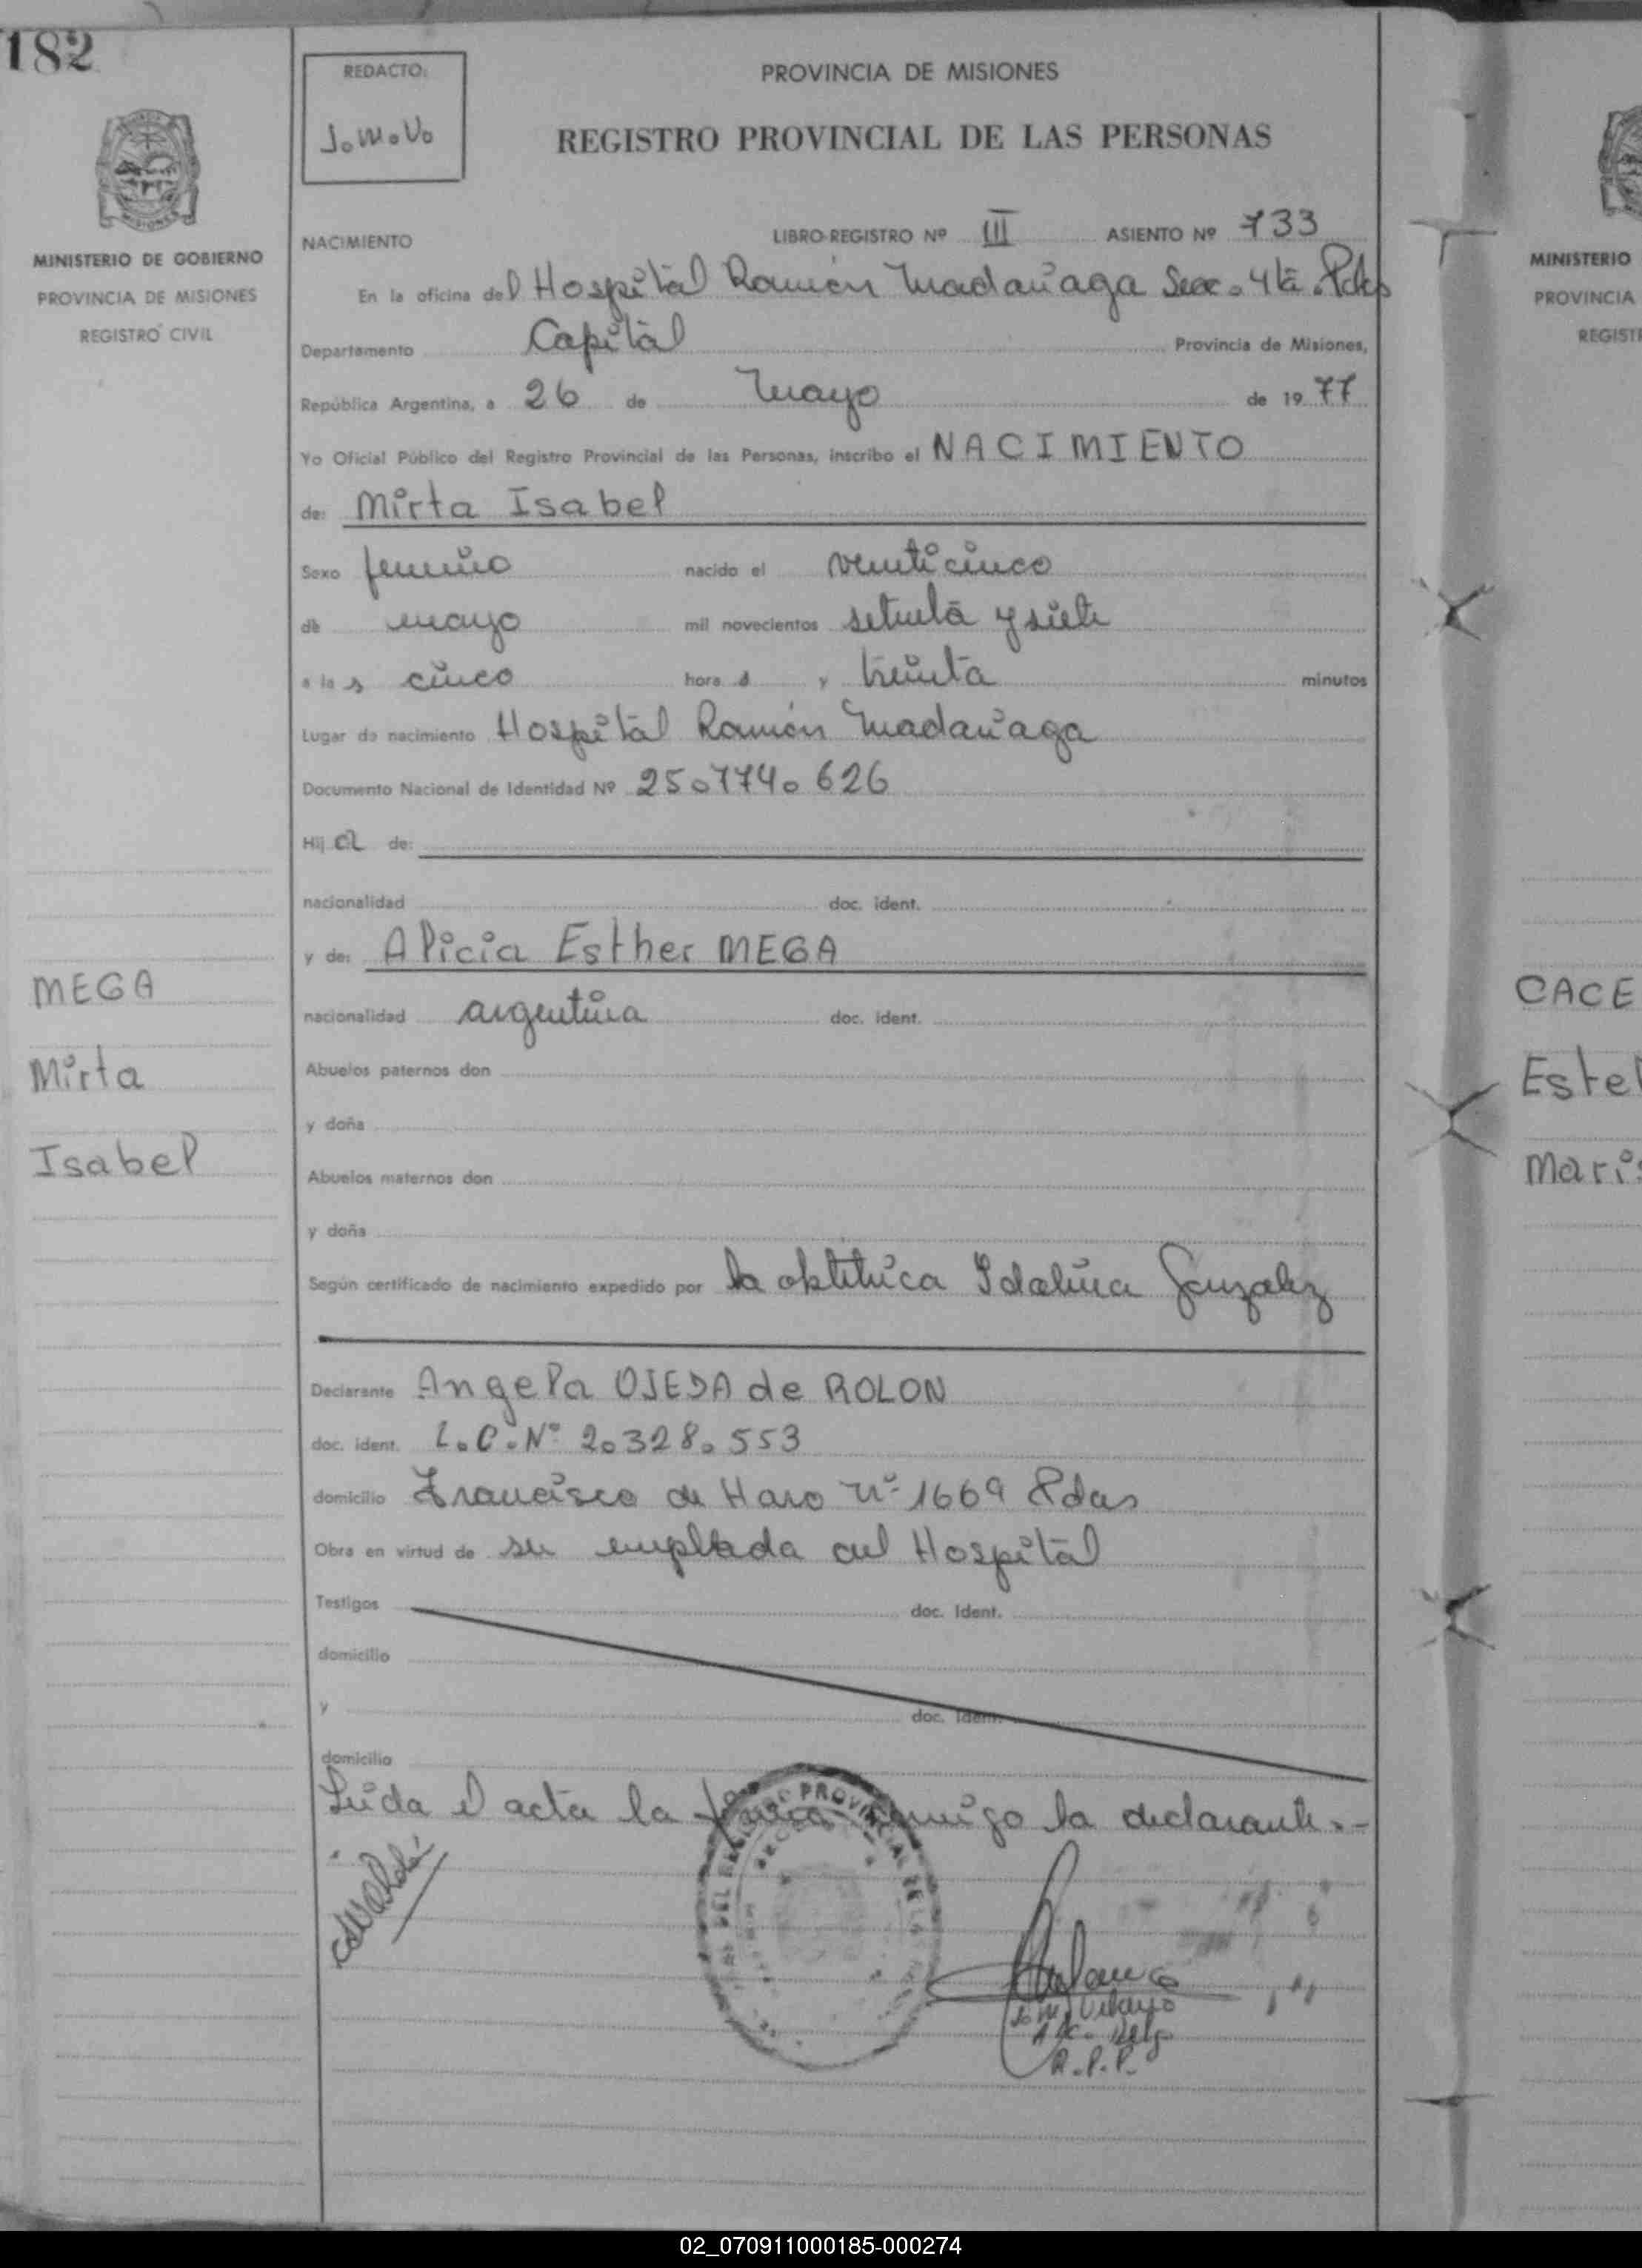 182
REDACTO:
J.M.V.
PROVINCIA DE MISIONES
REGISTRO PROVINCIAL DE LAS PERSONAS
MISIONES
MINISTERIO DE GOBIERNO
PROVINCIA DE MISIONES
REGISTRO CIVIL
NACIMIENTO LIBRO-REGISTRO Nº III ASIENTO Nº 733
En la oficina del Hospital Ramón Madariaga Secc. 4ta. Pdas
Departamento Capital Provincia de Misiones,
República Argentina, a 26 de mayo de 1977
Yo Oficial Público del Registro Provincial de las Personas, inscribo el NACIMIENTO
de: Mirta Isabel
Sexo femenino nacido el veinticinco
de mayo mil novecientos setenta y siete
a las cinco horas y treinta minutos
Lugar de nacimiento Hospital Ramón Madariaga
Documento Nacional de Identidad Nº 25.774.626
Hija de:
nacionalidad doc. ident.
y de: Alicia Esther MEGA
nacionalidad argentina doc. ident.
Abuelos paternos don
y doña
Abuelos maternos don
y doña
Según certificado de nacimiento expedido por la obstetrica Idalina Gonzalez
Declarante Angela OJEDA de ROLON
doc. ident. L.C.Nº 2.328.553
domicilio Francisco de Haro nº 1669 Pdas
Obra en virtud de ser empleada del Hospital
Testigos doc. Ident.
domicilio
y doc. Ident.
domicilio
Leida el acta la firma conmigo la declarante.-
MEGA
Mirta
Isabel
DEL REGISTRO PROVINCIAL DE LA
R.P.P.
MINISTERIO
PROVINCIA
REGIST
CACE
Estel
Maris
02_070911000185-000274